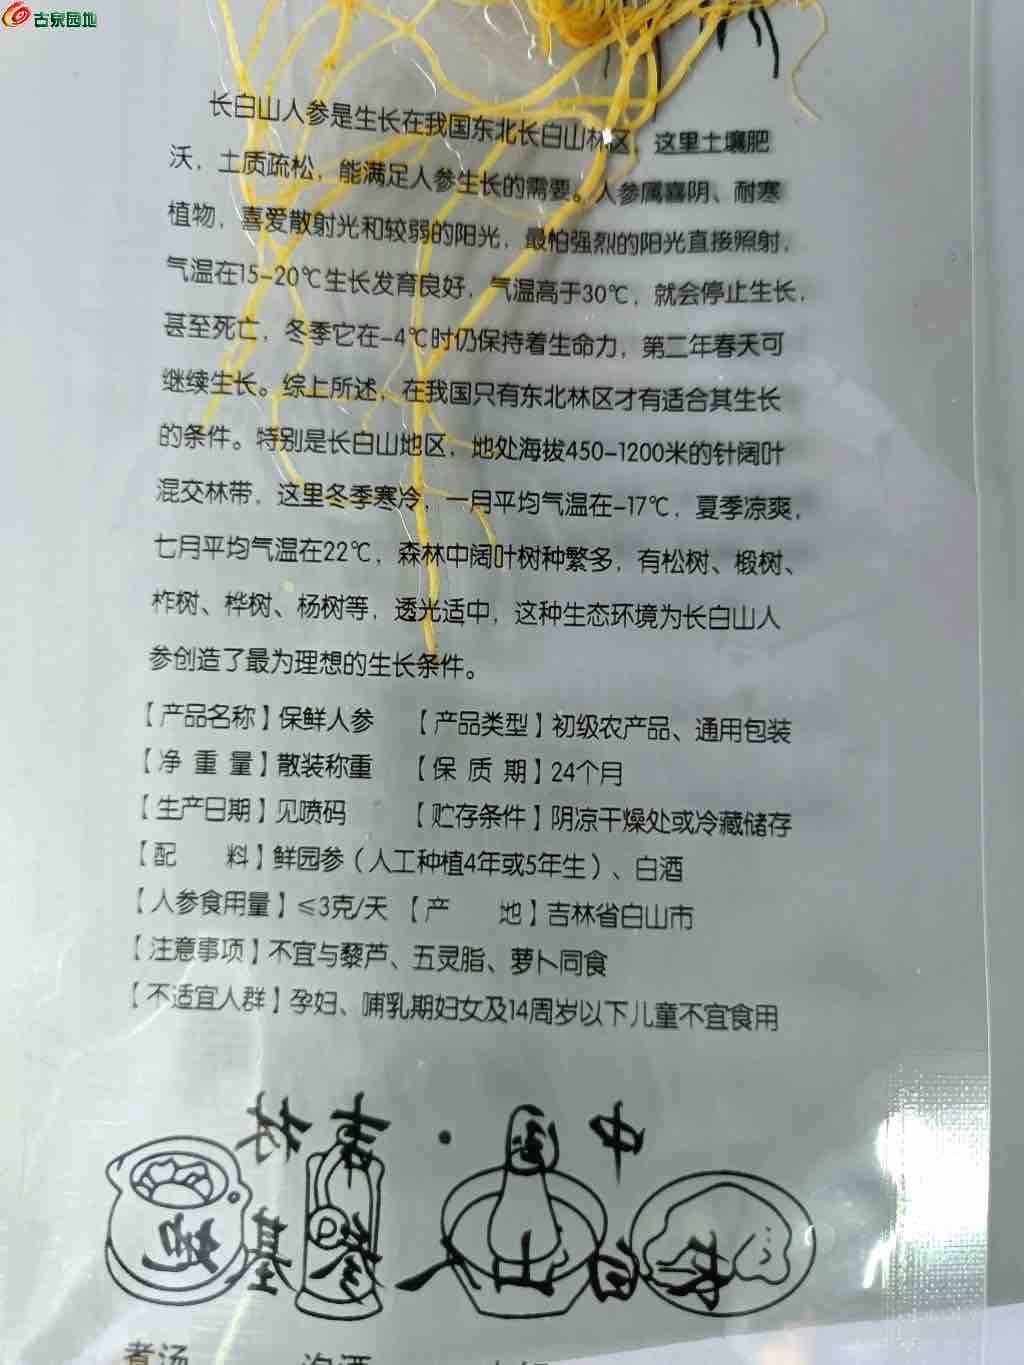 古泉园地
长白山人参是生长在我国东北长白山林区，这里土壤肥
沃，土质疏松，能满足人参生长的需要。人参属喜阴、耐寒
植物，喜爱散射光和较弱的阳光，最怕强烈的阳光直接照射，
气温在15-20℃生长发育良好，气温高于30℃，就会停止生长，
甚至死亡，冬季它在-4℃时仍保持着生命力，第二年春天可
继续生长。综上所述，在我国只有东北林区才有适合其生长
的条件。特别是长白山地区，地处海拔450-1200米的针阔叶
混交林带，这里冬季寒冷，一月平均气温在-17℃，夏季凉爽，
七月平均气温在22℃，森林中阔叶树种繁多，有松树、椴树、
柞树、桦树、杨树等，透光适中，这种生态环境为长白山人
参创造了最为理想的生长条件。
【产品名称】保鲜人参 【产品类型】初级农产品、通用包装
【净 重 量】散装称重 【保 质 期】24个月
【生产日期】见喷码 【贮存条件】阴凉干燥处或冷藏储存
【配 料】鲜园参（人工种植4年或5年生）、白酒
【人参食用量】≤3克/天 【产 地】吉林省白山市
【注意事项】不宜与藜芦、五灵脂、萝卜同食
【不适宜人群】孕妇、哺乳期妇女及14周岁以下儿童不宜食用
中国·吉林
林白山人参基地
煮汤
泡酒